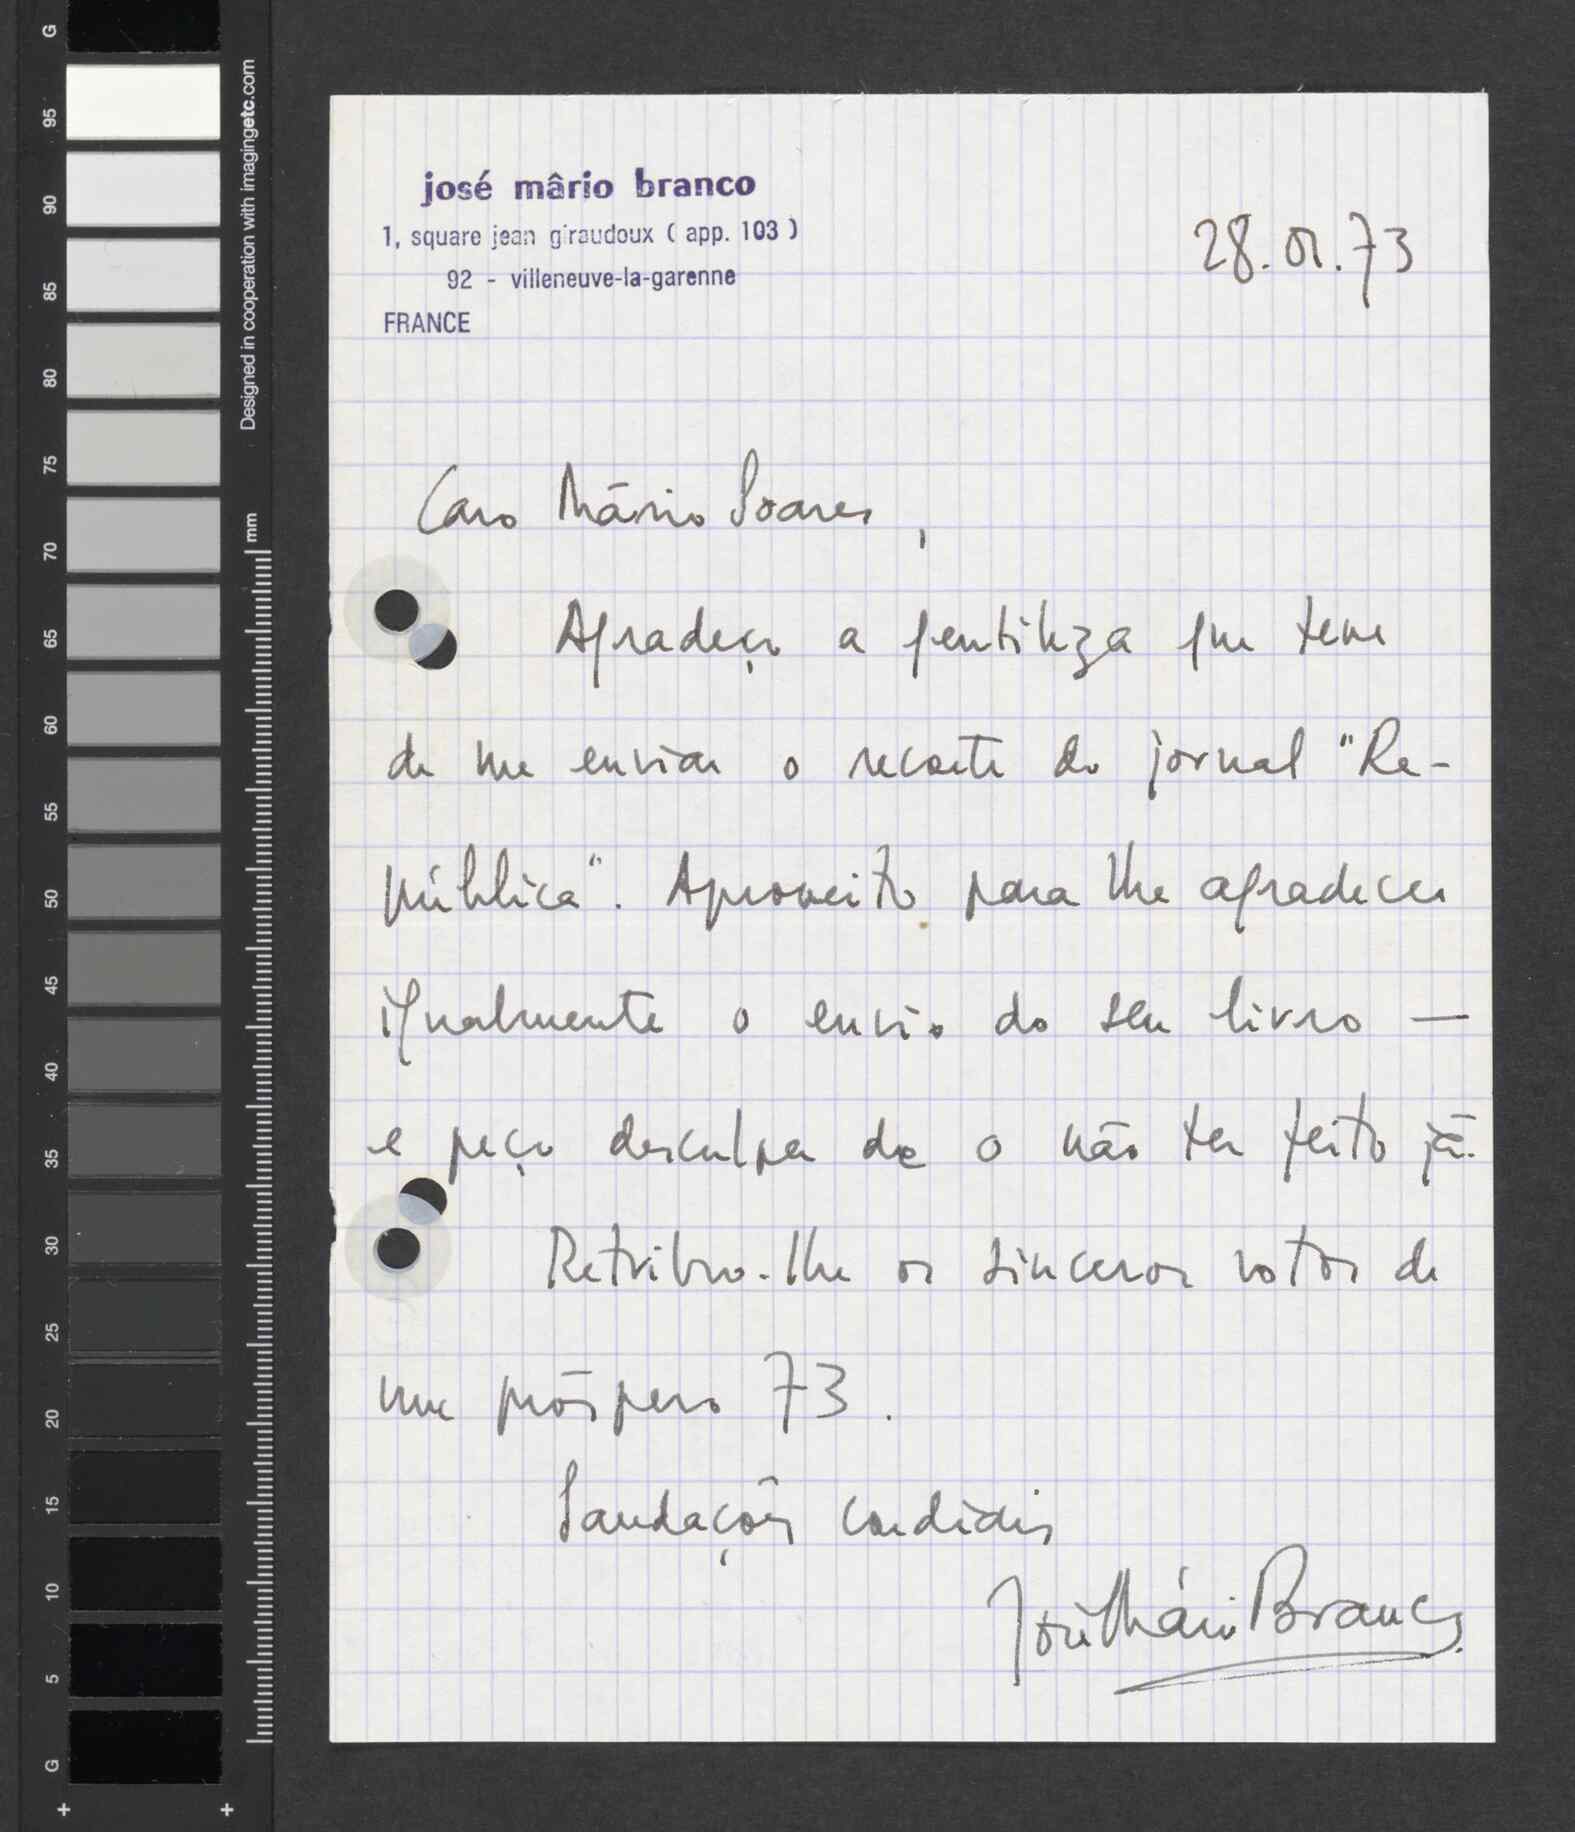 josé mârio branco
1, square jean giraudoux ( app. 103 )
92 - villeneuve-la-garenne
FRANCE
28.01.73
Caro Mário Soares,
Agradeço a gentileza que teve
de me enviar o recorte do jornal "Re-
pública". Aproveito para lhe agradecer
igualmente o envio do seu livro —
e peço desculpa de o não ter feito já.
Retribuo-lhe os sinceros votos de
um próspero 73.
Saudações cordiais
José Mário Branco
Designed in cooperation with imagingetc.com
mm
G
95
90
85
80
75
70
65
60
55
50
45
40
35
30
25
20
15
10
5
G